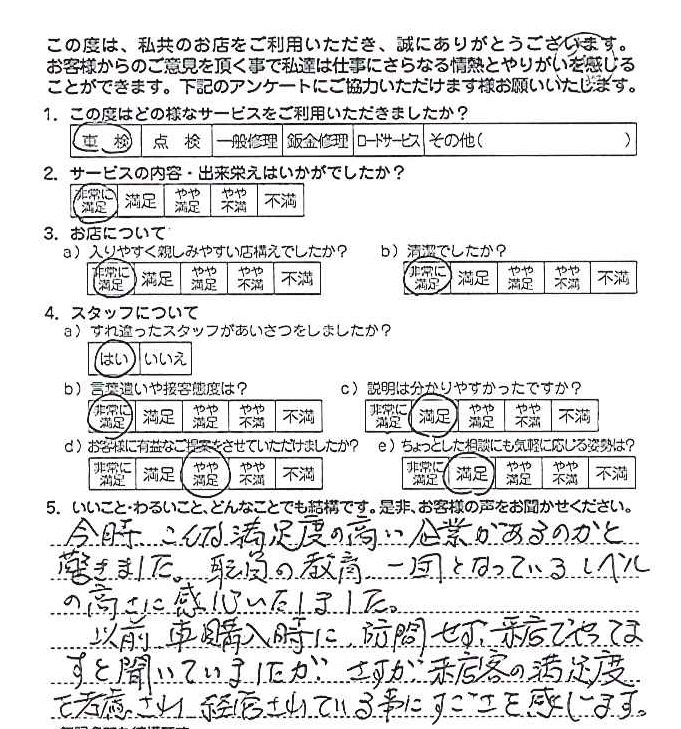 この度は、私共のお店をご利用いただき、誠にありがとうございます。
お客様からのご意見を頂く事で私達は仕事にさらなる情熱とやりがいを感じる
ことができます。下記のアンケートにご協力いただけます様お願いいたします。
1. この度はどの様なサービスをご利用いただきましたか？
車検 点検 一般修理 鈑金修理 ロードサービス その他( )
2. サービスの内容・出来栄えはいかがでしたか？
非常に満足 満足 やや満足 やや不満 不満
3. お店について
a）入りやすく親しみやすい店構えでしたか？ b）清潔でしたか？
非常に満足 満足 やや満足 やや不満 不満 非常に満足 満足 やや満足 やや不満 不満
4. スタッフについて
a）すれ違ったスタッフがあいさつをしましたか？
はい いいえ
b）言葉遣いや接客態度は？ c）説明は分かりやすかったですか？
非常に満足 満足 やや満足 やや不満 不満 非常に満足 満足 やや満足 やや不満 不満
d）お客様に有益なご提案をさせていただけましたか？ e）ちょっとした相談にも気軽に応じる姿勢は？
非常に満足 満足 やや満足 やや不満 不満 非常に満足 満足 やや満足 やや不満 不満
5. いいこと・わるいこと、どんなことでも結構です。是非、お客様の声をお聞かせください。
今時、こんな満足度の高い企業があるのかと
驚きました。職員の教育、一団となっているレベル
の高さに感心いたしました。
以前、車購入時に、訪問せず、来店でやってま
すと聞いていましたが、さすが、来店客の満足度
で考慮され、経営されている事にすごさを感じます。